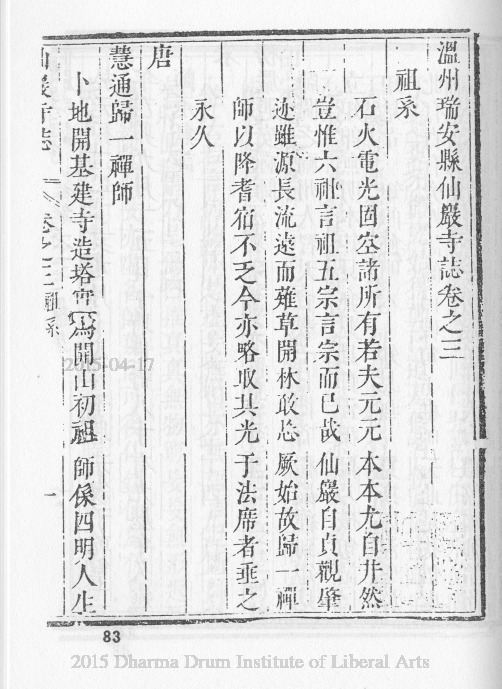 溫州瑞安縣仙巖寺誌卷之三
祖系
石火電光固空諸所有若夫元元本本尤自井然
豈惟六祖言祖五宗言宗而已哉仙巖自貞觀肇
迹雖源長流遠而薙草開林敢忘厥始故歸一禪
師以降耆宿不乏今亦略取其光于法席者垂之
永久
唐
慧通歸一禪師
卜地開基建寺造塔實為開山初祖師係四明人生
仙巖寺誌 卷之三 祖系 一
83
2015-04-17
2015 Dharma Drum Institute of Liberal Arts